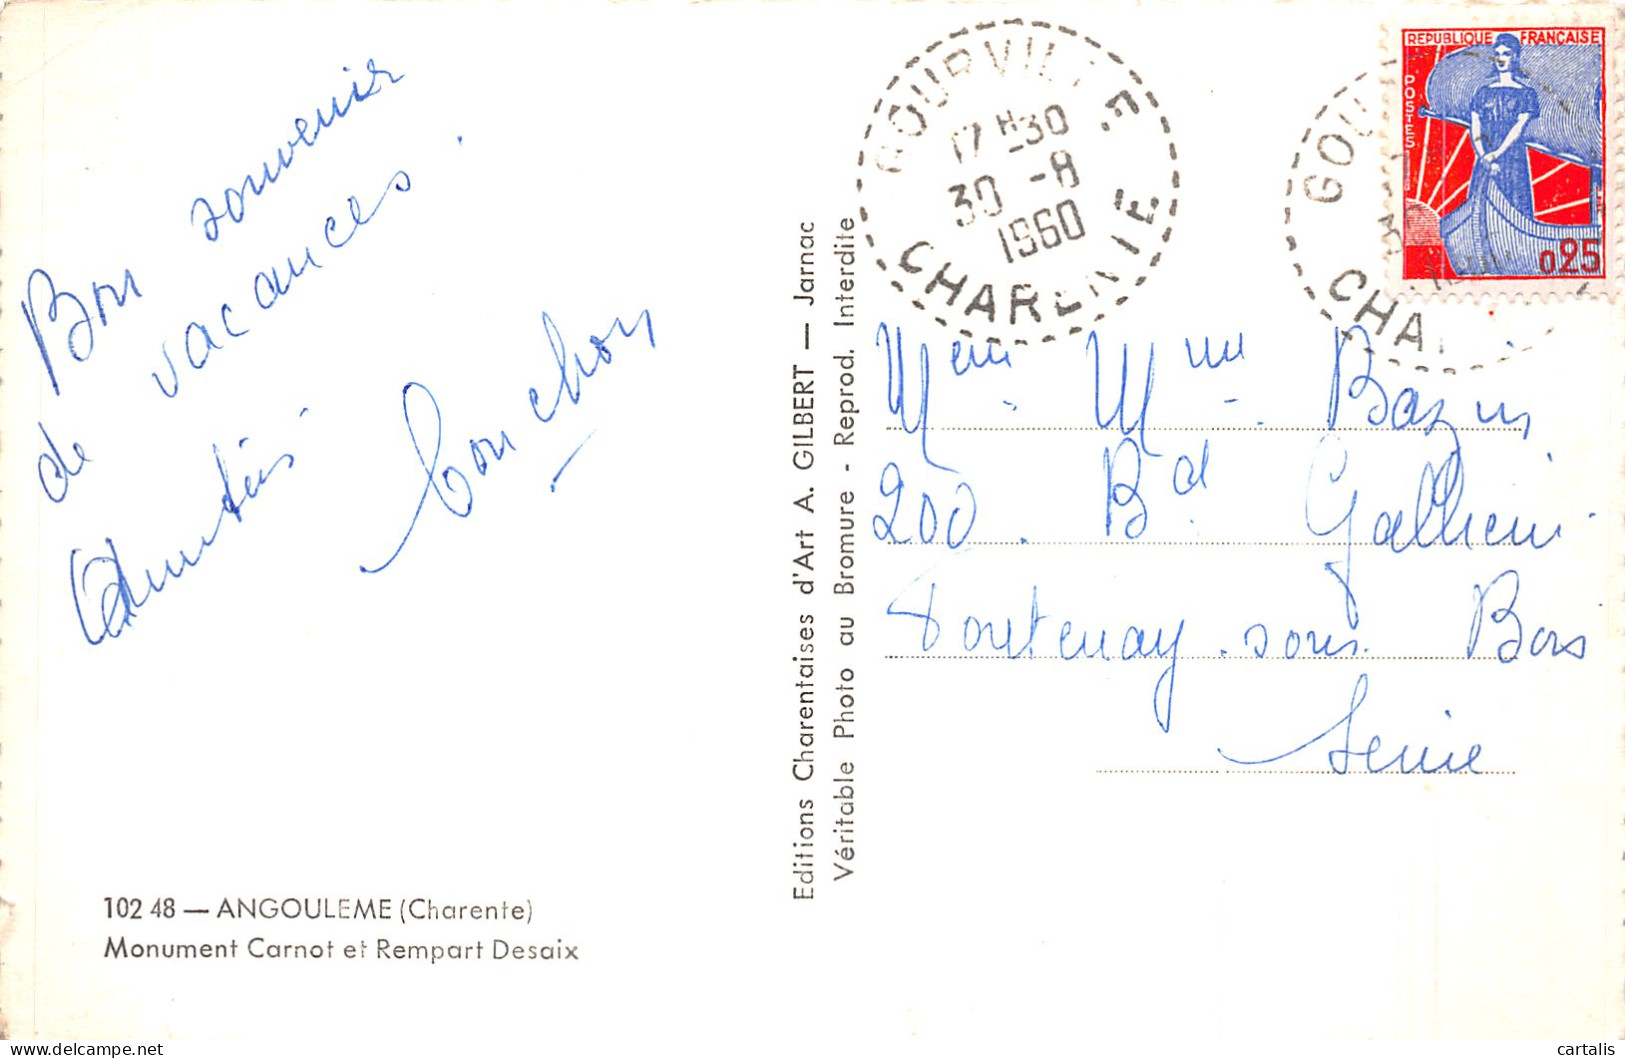 Bon souvenir
de vacances.
Amitiés
102 48 — ANGOULEME (Charente)
Monument Carnot et Rempart Desaix
Editions Charentaises d'Art A. GILBERT — Jarnac
Véritable Photo au Bromure - Reprod. Interdite
GOURVILLE
17 H-30
30 -8
1960
CHARENTE
REPUBLIQUE FRANÇAISE
POSTES
0,25
GOU
CHA
Bazin
200. Bd. Gallieni
Fontenay. sous. Bois
Seine
cartalis